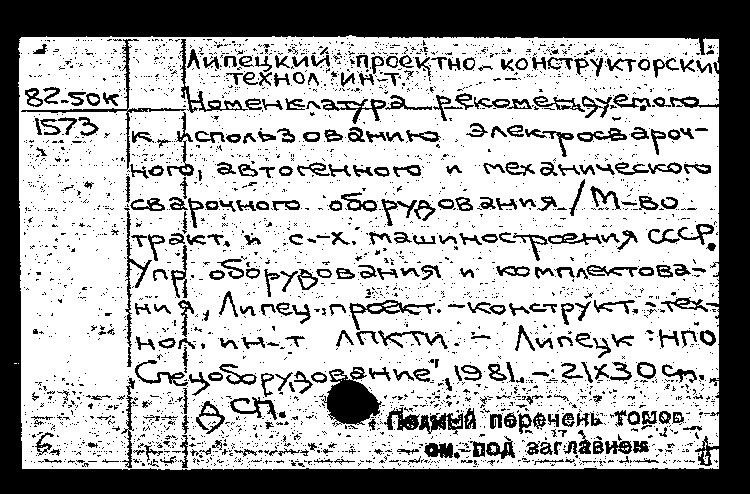 Липецкий проектно-конструкторский
технол. ин-т.
82-50к
Номенклатура рекомендуемого
1573
к использованию электросвароч-
ного, автогенного и механического
сварочного оборудования / М-во
тракт. и с.-х. машиностроения СССР.
Упр. оборудования и комплектова-
ния, Липец. проект.-конструкт.-тех-
нол. ин-т ЛПКТИ. - Липецк : НПО
"Спецоборудование", 1981. - 21х30 см.
сп.
Полный перечень томов
см. под заглавием
6